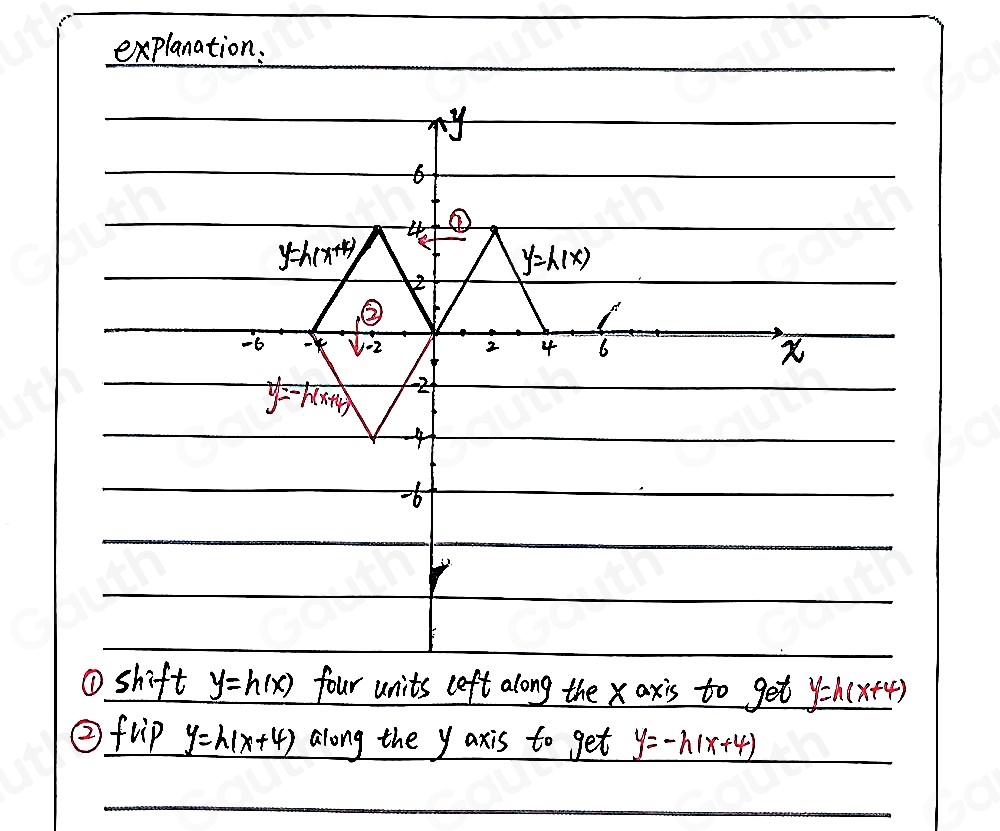 explanation:
y
6
4 ①
y=h(x+4) y=h(x)
2
②
-6 -4 -2 2 4 6
x
y=-h(x+4) -2
-4
-6
① shift y=h(x) four units left along the x axis to get y=h(x+4)
② flip y=h(x+4) along the y axis to get y=-h(x+4)
Gauth